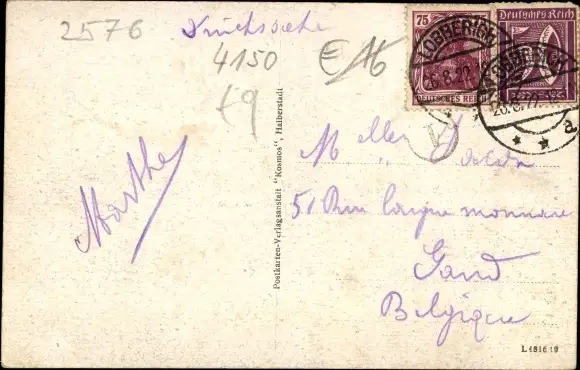 2576 Drucksache
4150
£9
E/16
75
DEUTSCHES REICH
Deutsches Reich
LOBBERICH
26.8.22
LOBBERICH
26.8.22
a
Marthe
Postkarten-Verlagsanstalt "Kosmos", Halberstadt
Melle
51 Rue longue monnaie
Gand
Belgique
L4816 19